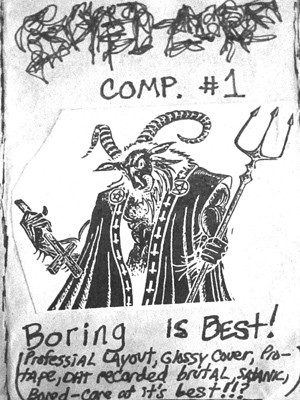 COMP. #1
Boring is Best!
(Professial Layout, Glossy Cover, Pro-
tape, DAT recorded brutal, SATANIC,
Bored-core at it's best!!?)